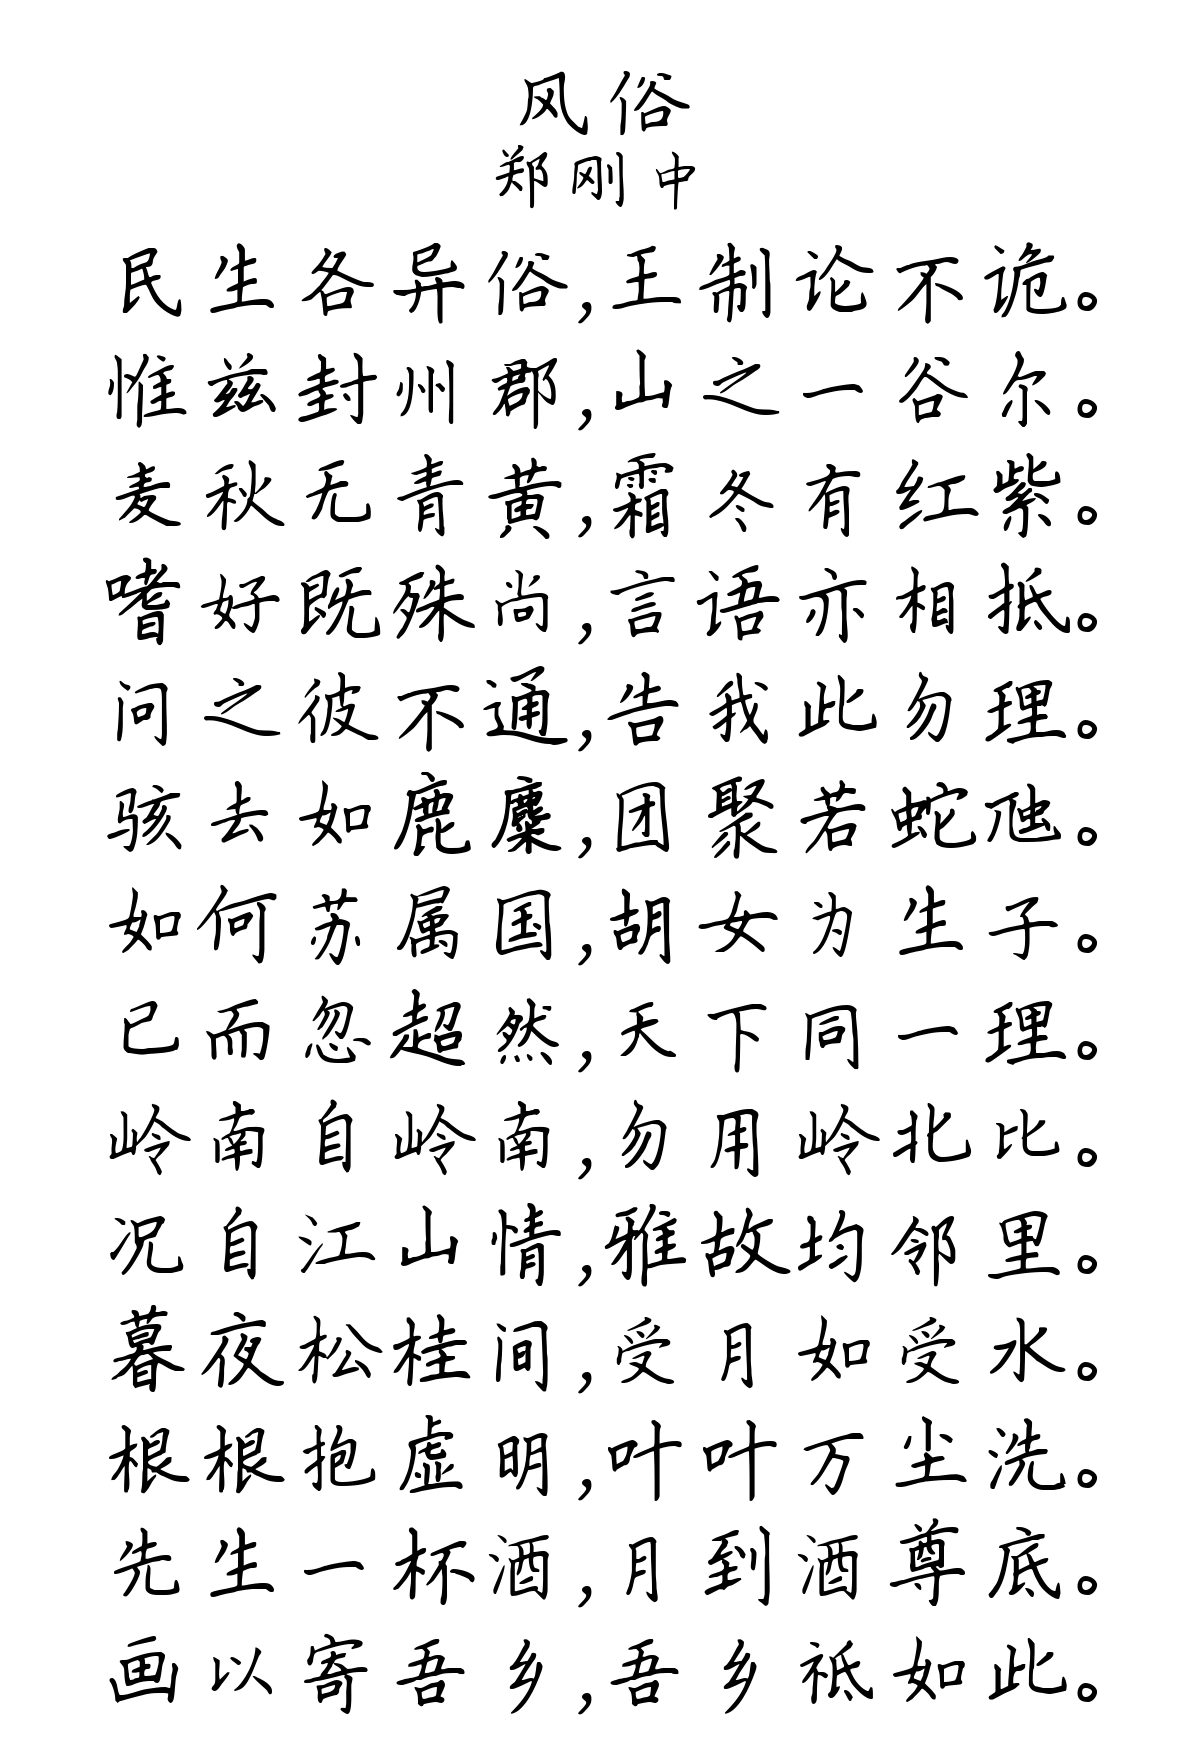 风俗
郑刚中
民生各异俗,王制论不诡。
惟兹封州郡,山之一谷尔。
麦秋无青黄,霜冬有红紫。
嗜好既殊尚,言语亦相抵。
问之彼不通,告我此勿理。
骇去如鹿麋,团聚若蛇虺。
如何苏属国,胡女为生子。
已而忽超然,天下同一理。
岭南自岭南,勿用岭北比。
况自江山情,雅故均邻里。
暮夜松桂间,受月如受水。
根根抱虚明,叶叶万尘洗。
先生一杯酒,月到酒尊底。
画以寄吾乡,吾乡祗如此。